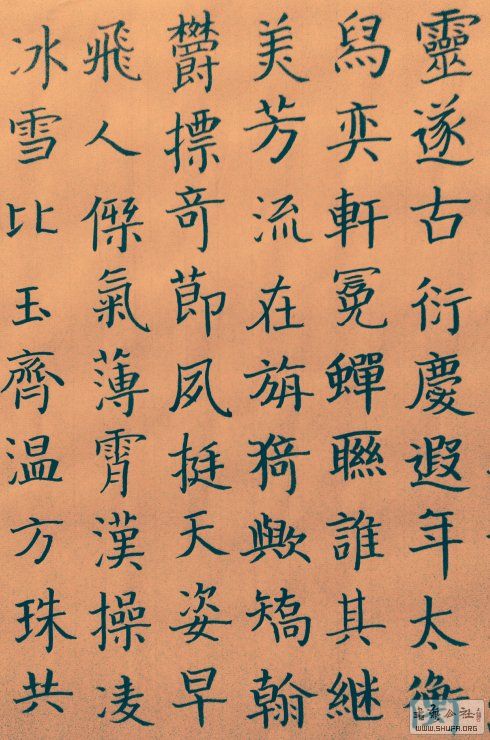 靈遂古衍慶遐年太衡
舄奕軒冕蟬聯誰其継
美芳流在旃猗歟矯翰
欝摽奇節夙挺天姿早
飛人傑氣薄霄漢操凌
冰雪比玉齊温方珠共
WWW.SHUFA.ORG